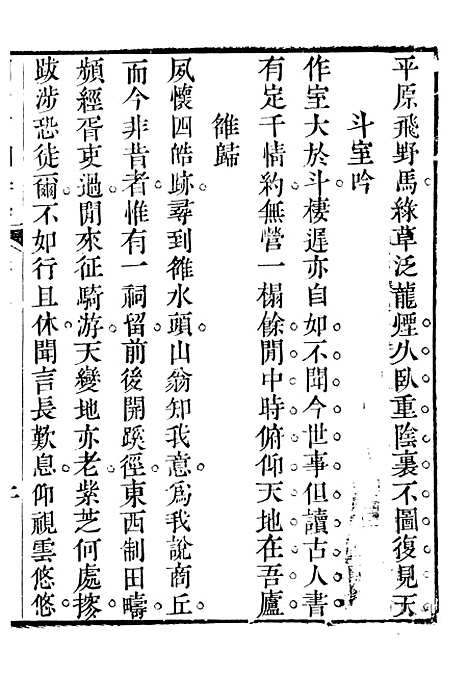 平原飛野馬綠草泛龍煙。久臥重陰裏不圖復見天
斗室吟
作室大於斗棲遲亦自如。不聞今世事。但讀古人書。
有定千情約無營一榻餘。閒中時俯仰天地在吾廬。
雒歸
夙懷四皓跡尋到雒水頭。山翁知我意。為我說商丘。
而今非昔者。惟有一祠留。前後開蹊徑。東西制田疇。
頻經胥吏過。閒來征騎游。天變地亦老。紫芝何處掇。
跋涉恐徒爾。不如行且休。聞言長歎息。仰視雲悠悠。